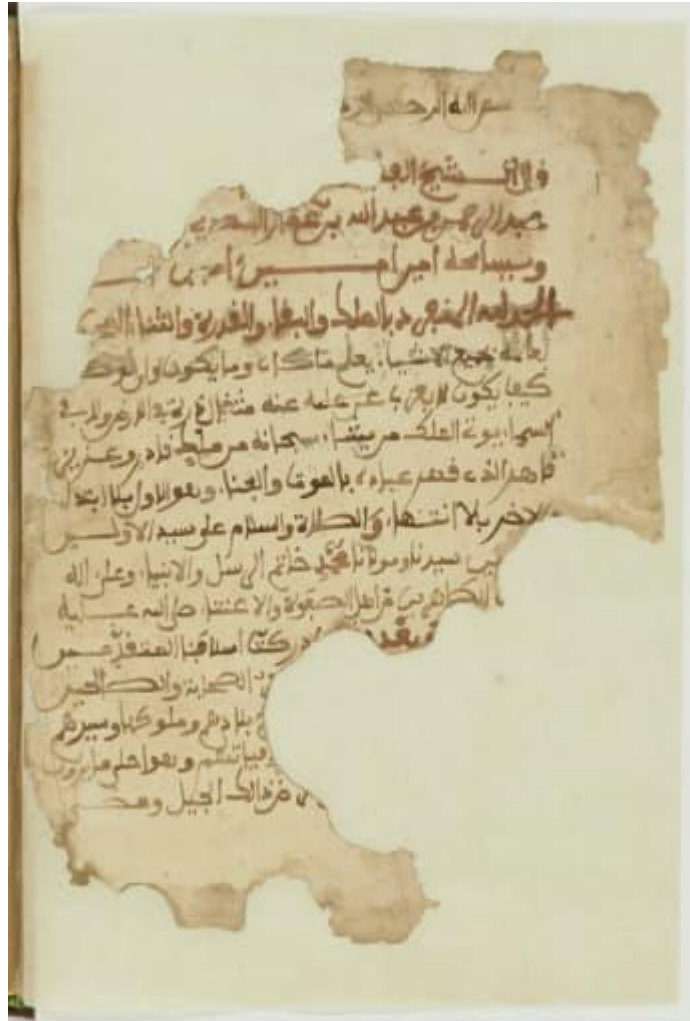 بسم الله الرحمن الر
قال الشيخ الفـ
عبد الرحمن بن عبد الله بن عمران السعدي
وسامحه امين امين امين
الحمد لله المنفرد بالملك والبقا والقدرة والثنا
بعلمه جميع الاشيا يعلم ما كان وما يكون وان لو كان
كيف يكون لا يعزب عن علمه مثقال ذرة في الارض ولا في
السما يوتي الملك من يشا سبحانه من مليك قادر وعزيز
قاهر الذي قهر عباده بالموت والفنا وهو الاول بلا ابتدا
والاخر بلا انتها والصلاة والسلام على سيد الاولين
سيدنا ومولانا محمد خاتم الرسل والانبيا وعلى اله
الطاهرين من اهل الصفوة والاعتنا صلى الله عليه
وبعد ادركنا اسلافنا المتقدمين
الصحابة والصالحين
بلادهم وملوكها وسيرهم
وهو احلى ما يرون
ذلك الجيل